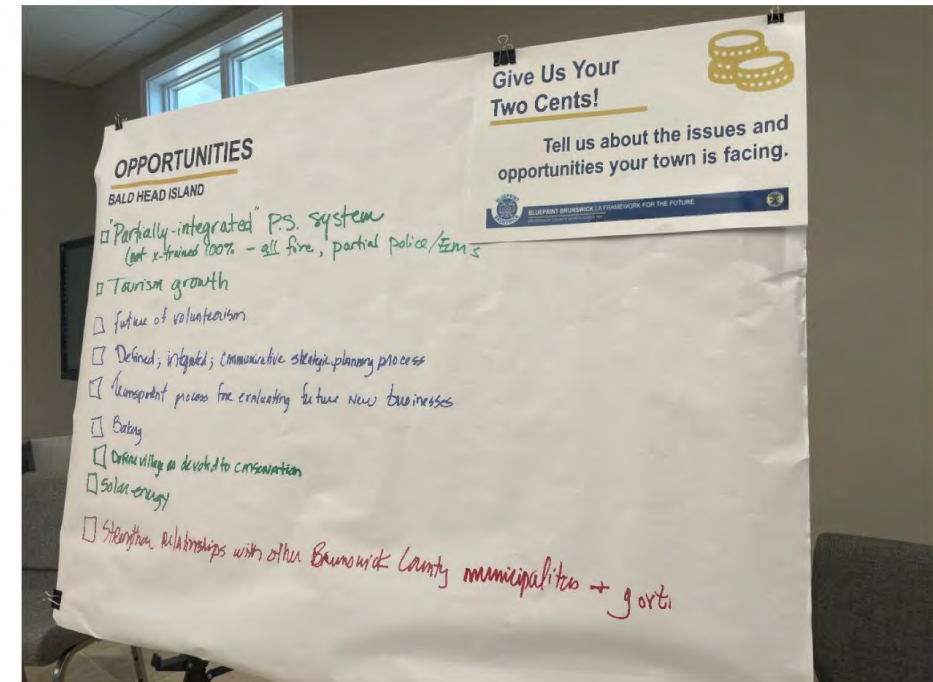 Give Us Your
Two Cents!
Tell us about the issues and
opportunities your town is facing.
BLUEPRINT BRUNSWICK | A FRAMEWORK FOR THE FUTURE
OPPORTUNITIES
BALD HEAD ISLAND
"Partially-integrated" P.S. system
(not x-trained 100% - all fire, partial police/EMS
Tourism growth
Future of volunteerism
Defined, integrated, communicative strategic planning process
Transparent process for evaluating future new businesses
Bakery
Define village as devoted to conservation
Solar energy
Strengthen relationships with other Brunswick County municipalities + govt.